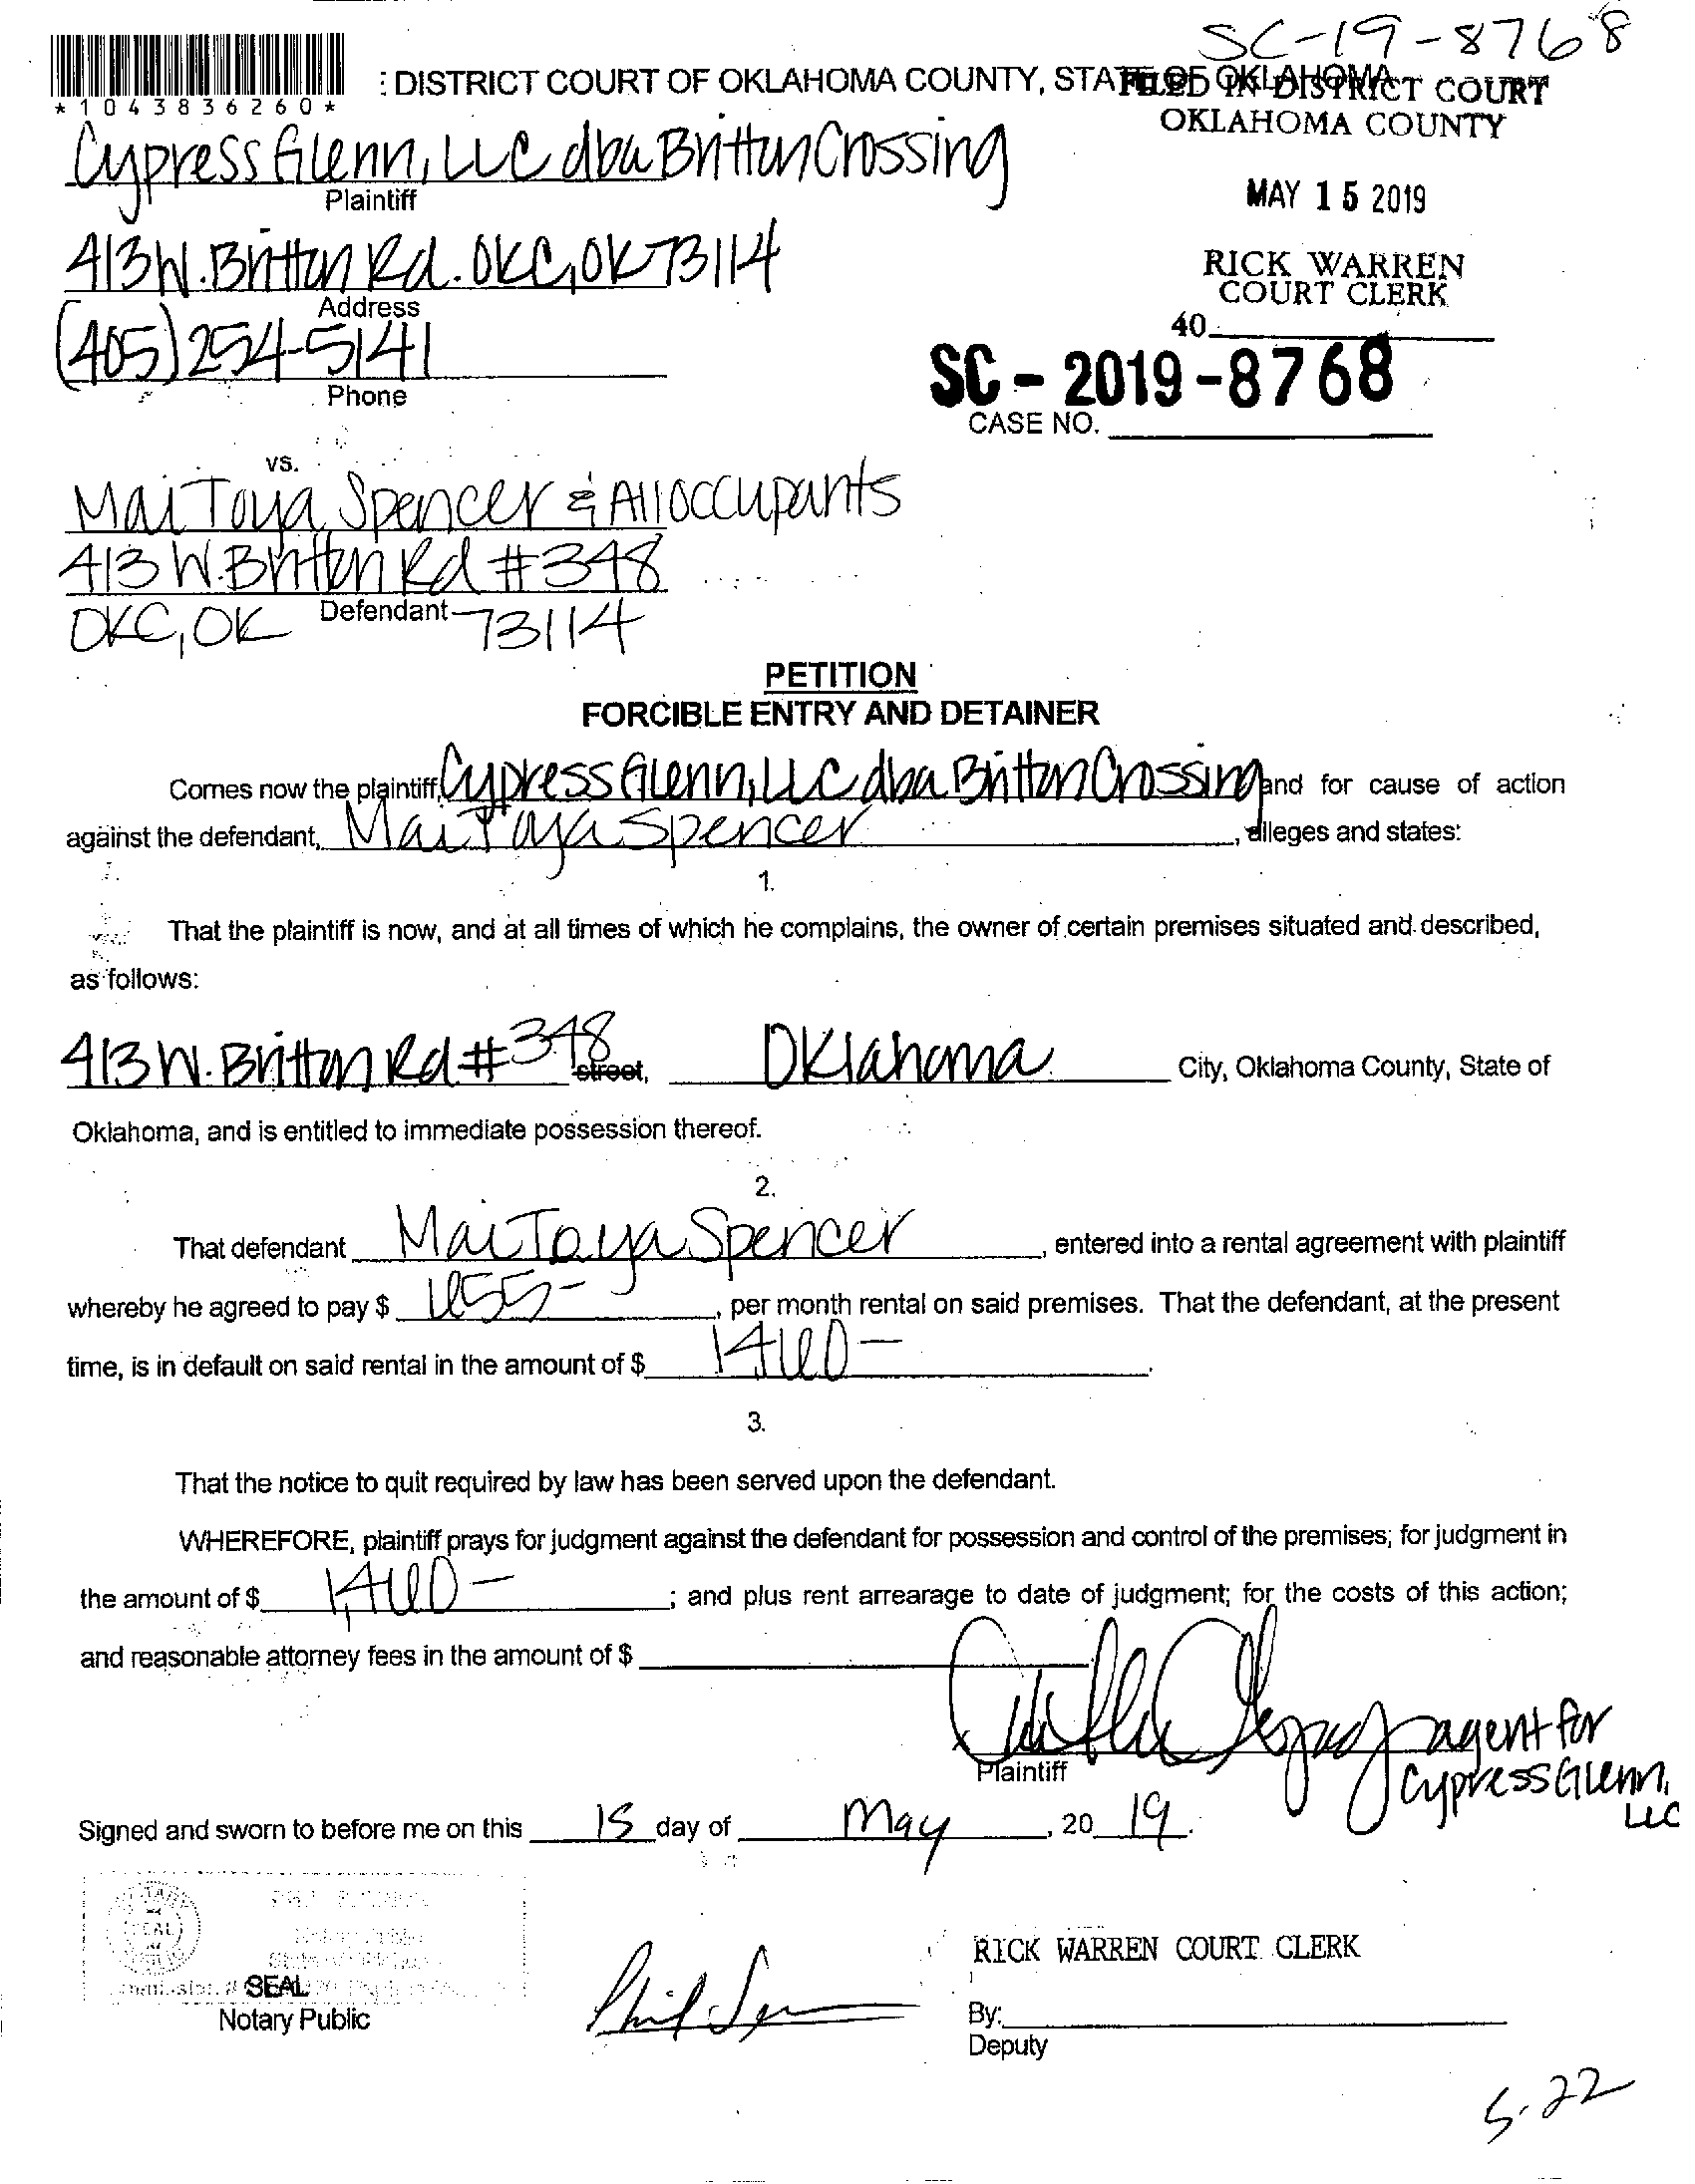 SC-19-8768
*1043836260*
: DISTRICT COURT OF OKLAHOMA COUNTY, STATE OF OKLAHOMA
FILED IN DISTRICT COURT
OKLAHOMA COUNTY
Cypress Glenn, LLC dba Britton Crossing
Plaintiff
MAY 15 2019
413 W. Britton Rd. OKC, OK 73114
Address
RICK WARREN
COURT CLERK
40
(405) 254-5141
Phone
SC - 2019 - 8768
CASE NO.
vs.
Mai Toya Spencer & All occupants
413 W. Britton Rd #348
OKC, OK Defendant 73114
PETITION
FORCIBLE ENTRY AND DETAINER
Comes now the plaintiff, Cypress Glenn, LLC dba Britton Crossing and for cause of action
against the defendant, Mai Toya Spencer, alleges and states:
1.
That the plaintiff is now, and at all times of which he complains, the owner of certain premises situated and described,
as follows:
413 W. Britton Rd #348 street, Oklahoma City, Oklahoma County, State of
Oklahoma, and is entitled to immediate possession thereof.
2.
That defendant Mai Toya Spencer, entered into a rental agreement with plaintiff
whereby he agreed to pay $ 655-, per month rental on said premises. That the defendant, at the present
time, is in default on said rental in the amount of $ 1,460-.
3.
That the notice to quit required by law has been served upon the defendant.
WHEREFORE, plaintiff prays for judgment against the defendant for possession and control of the premises; for judgment in
the amount of $ 1,460-; and plus rent arrearage to date of judgment; for the costs of this action;
and reasonable attorney fees in the amount of $
agent for
Plaintiff
Cypress Glenn,
LLC
Signed and sworn to before me on this 15 day of May, 20 19.
RICK WARREN COURT CLERK
SEAL
Notary Public
By:
Deputy
5-22